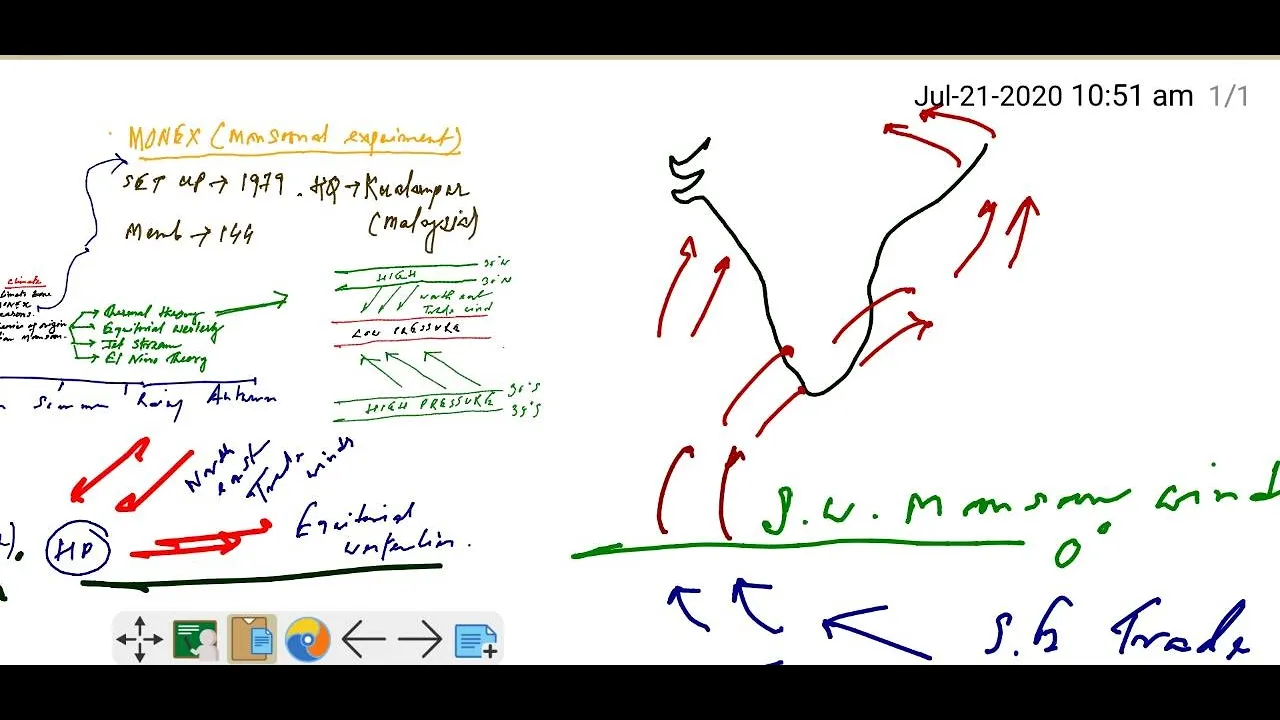 Jul-21-2020 10:51 am 1/1
MONEX (Monsoonal expeiment)
SET up → 1979 . HQ → Kualampur
(Malaysia)
Memb → 144
climate
Thermal theory
Equitorial westerly
Jet stream
El Nino Theory
HIGH
30°N
North east
Trade wind
LOW PRESSURE
HIGH PRESSURE
Summer Rainy Autumn
North
east
Trade
winds
HP
Equitorial
S.W. Monsoon wind
0°
S.E Trade